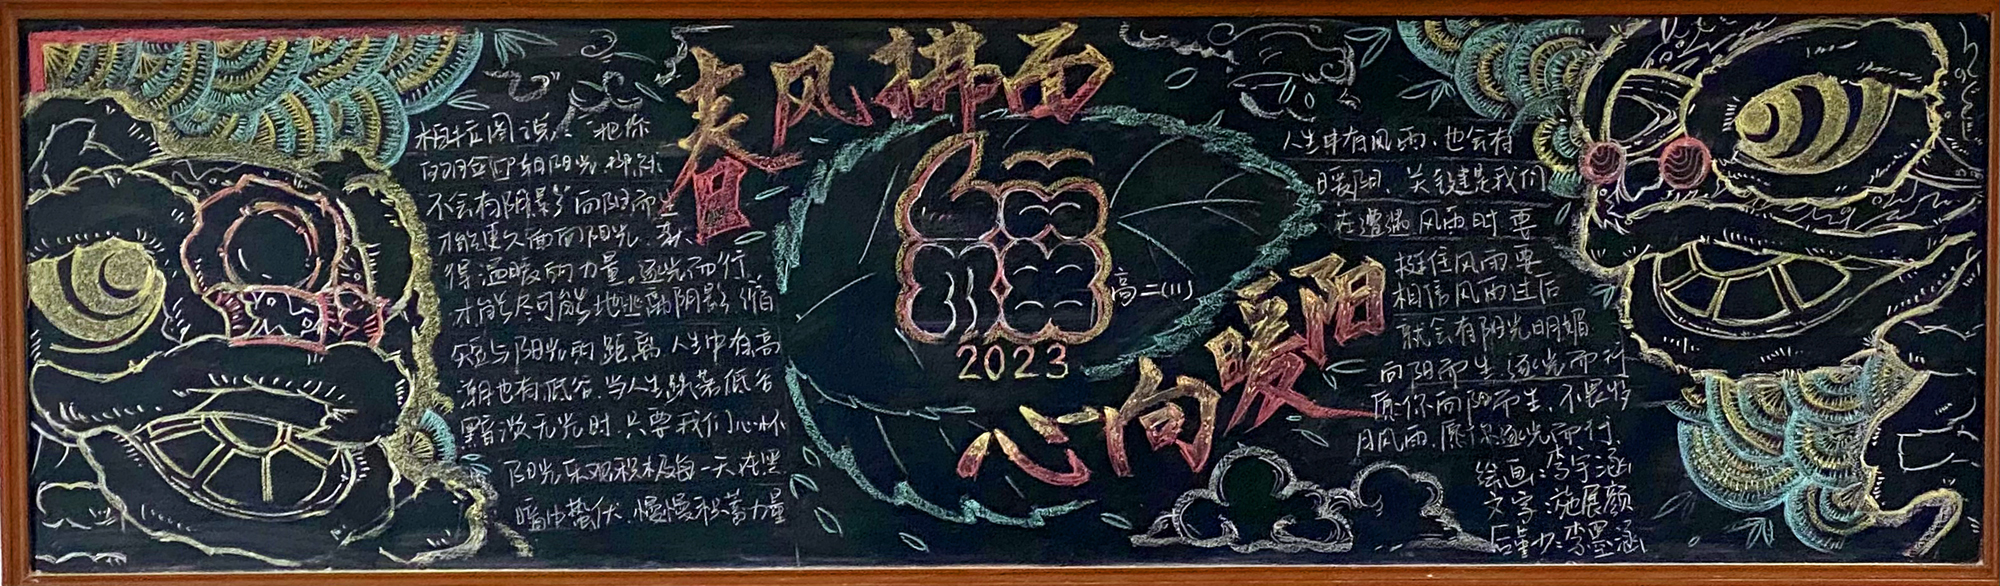 春风拂面
心向暖阳
2023
高二(11)
柏拉图说：“把你
的脸迎朝阳光那就
不会有阴影”向阳而生
才能更久面向阳光、获
得温暖的力量。逐光而行，
才能尽可能地逃离阴影缩
短与阳光的距离人生中有高
潮也有低谷.当人生跌落低谷
黯淡无光时.只要我们心怀
阳光乐观积极每一天在黑
暗中蛰伏.慢慢积蓄力量
人生中有风雨、也会有
暖阳、关键是我们
在遭遇风雨时要
挺住风雨.要
相信风雨过后
就会有阳光明媚
向阳而生逐光而行
愿你向阳而生、不畏岁
月风雨.愿你逐光而行.
绘画：李宇涵
文字：施展颜
后勤：李墨涵